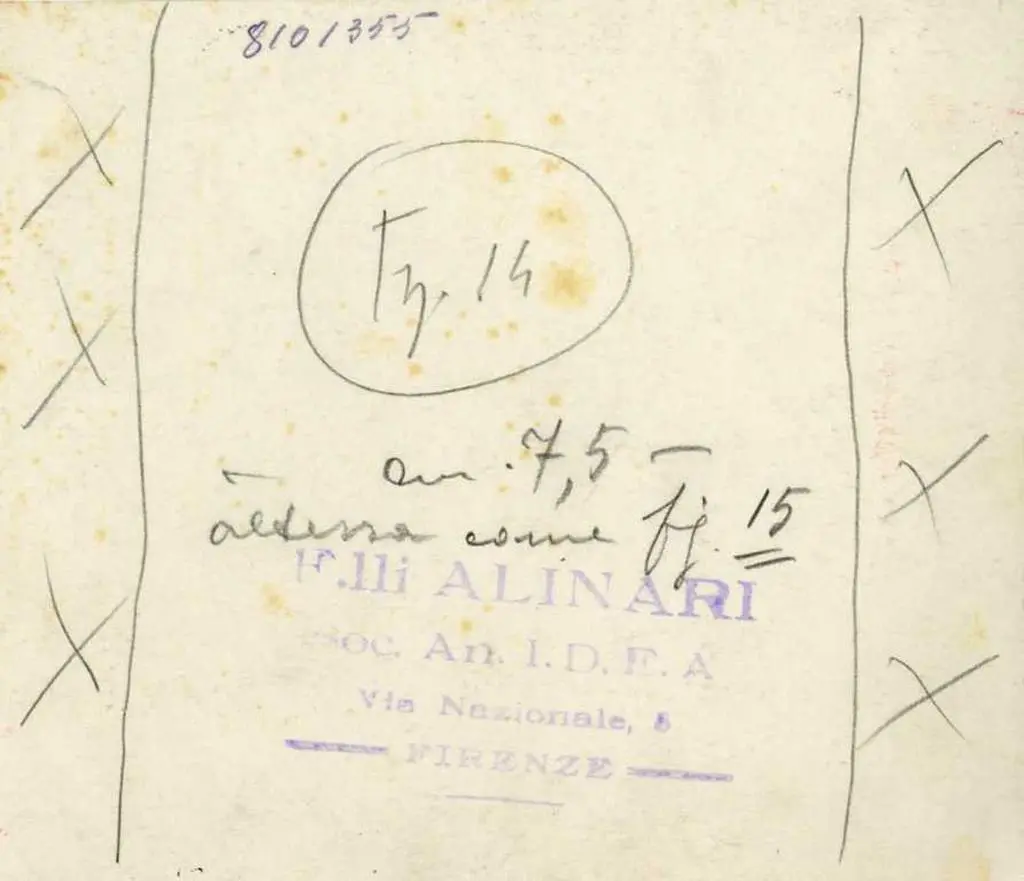 8101355
Fig. 14
cm. 7,5 —
altezza come fig. 15
F.lli ALINARI
Soc. An. I. D. E. A
Via Nazionale, 8
FIRENZE